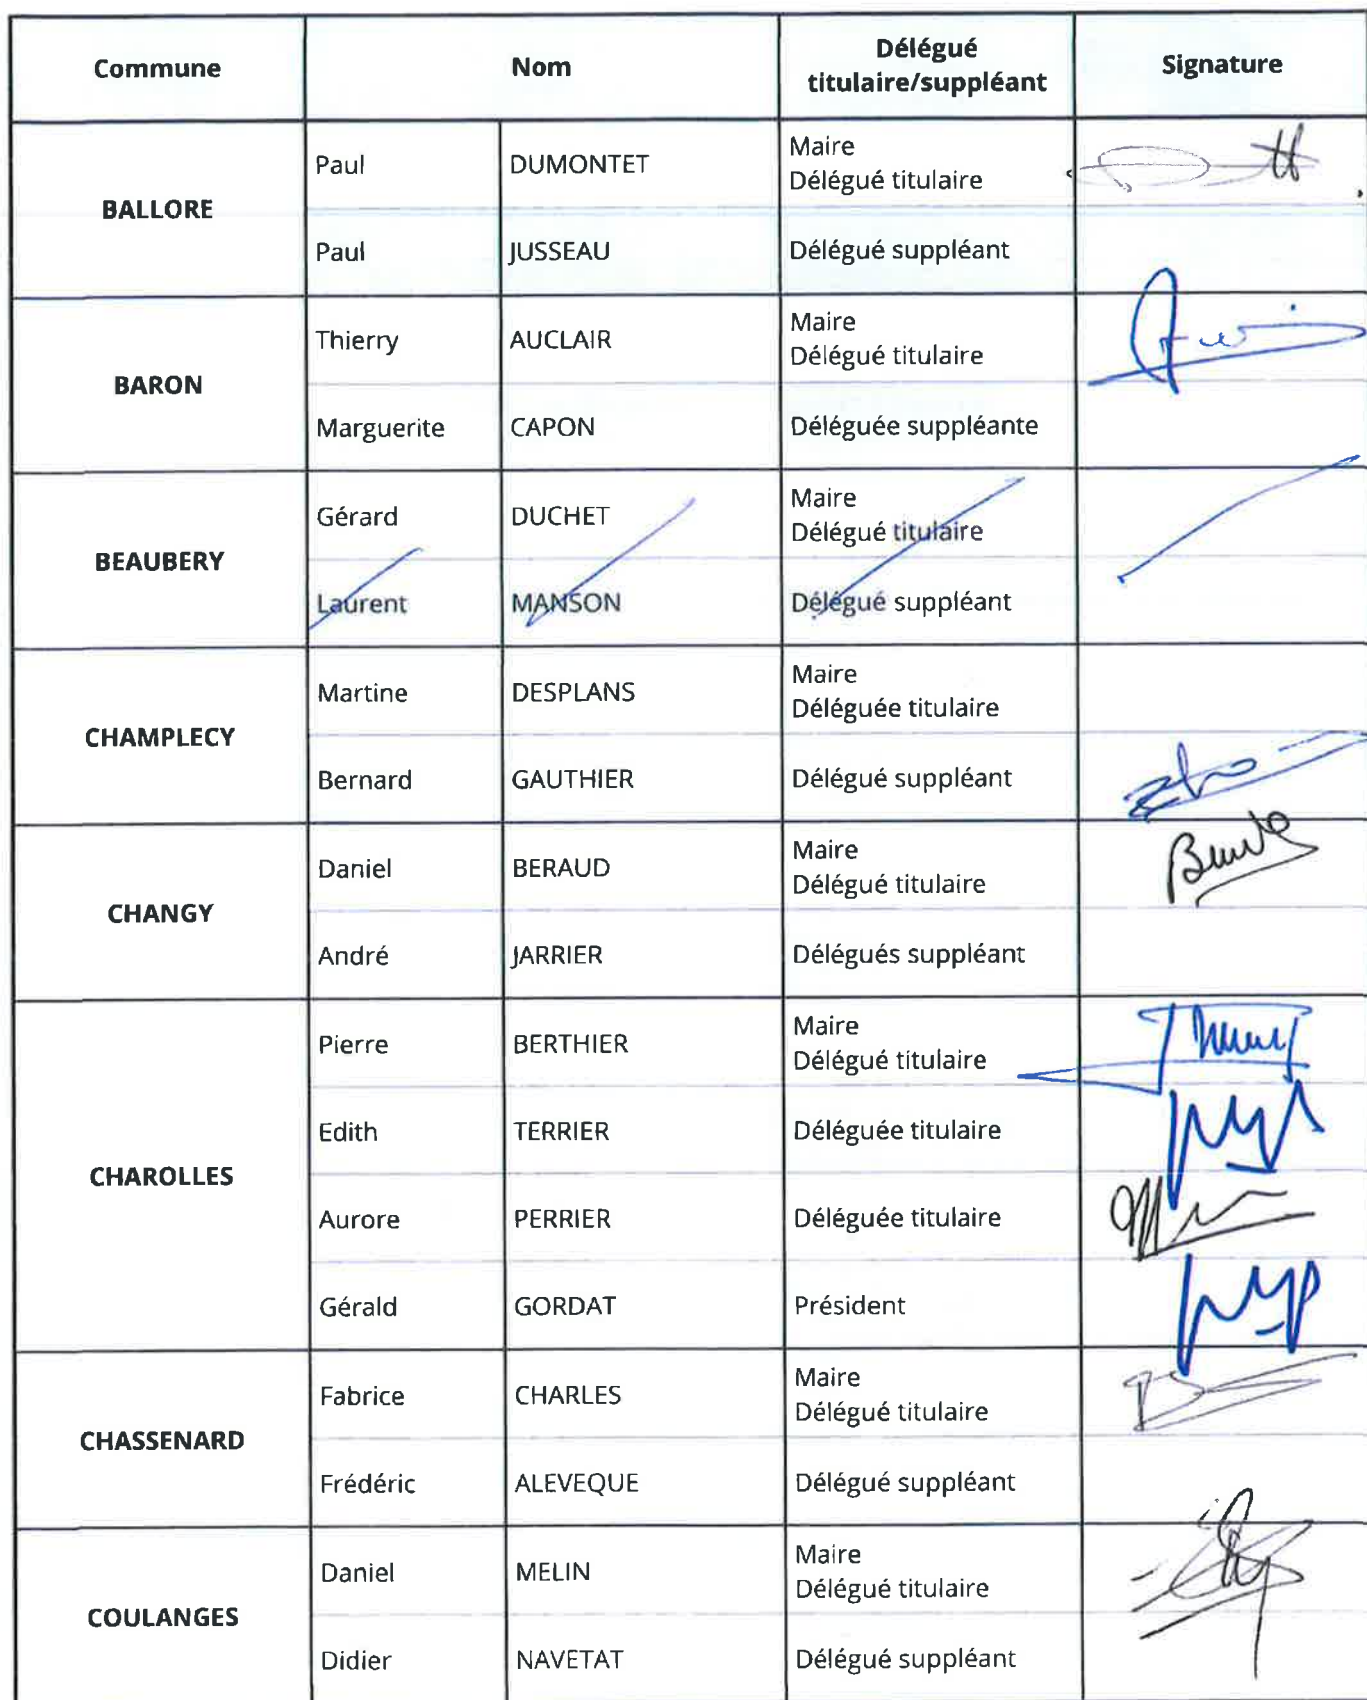 Commune Nom Délégué titulaire/suppléant Signature
BALLORE
Paul DUMONTET Maire
Délégué titulaire
Paul JUSSEAU Délégué suppléant
BARON
Thierry AUCLAIR Maire
Délégué titulaire
Marguerite CAPON Déléguée suppléante
BEAUBERY
Gérard DUCHET Maire
Délégué titulaire
Laurent MANSON Délégué suppléant
CHAMPLECY
Martine DESPLANS Maire
Déléguée titulaire
Bernard GAUTHIER Délégué suppléant
CHANGY
Daniel BERAUD Maire
Délégué titulaire
André JARRIER Délégués suppléant
CHAROLLES
Pierre BERTHIER Maire
Délégué titulaire
Edith TERRIER Déléguée titulaire
Aurore PERRIER Déléguée titulaire
Gérald GORDAT Président
CHASSENARD
Fabrice CHARLES Maire
Délégué titulaire
Frédéric ALEVEQUE Délégué suppléant
COULANGES
Daniel MELIN Maire
Délégué titulaire
Didier NAVETAT Délégué suppléant